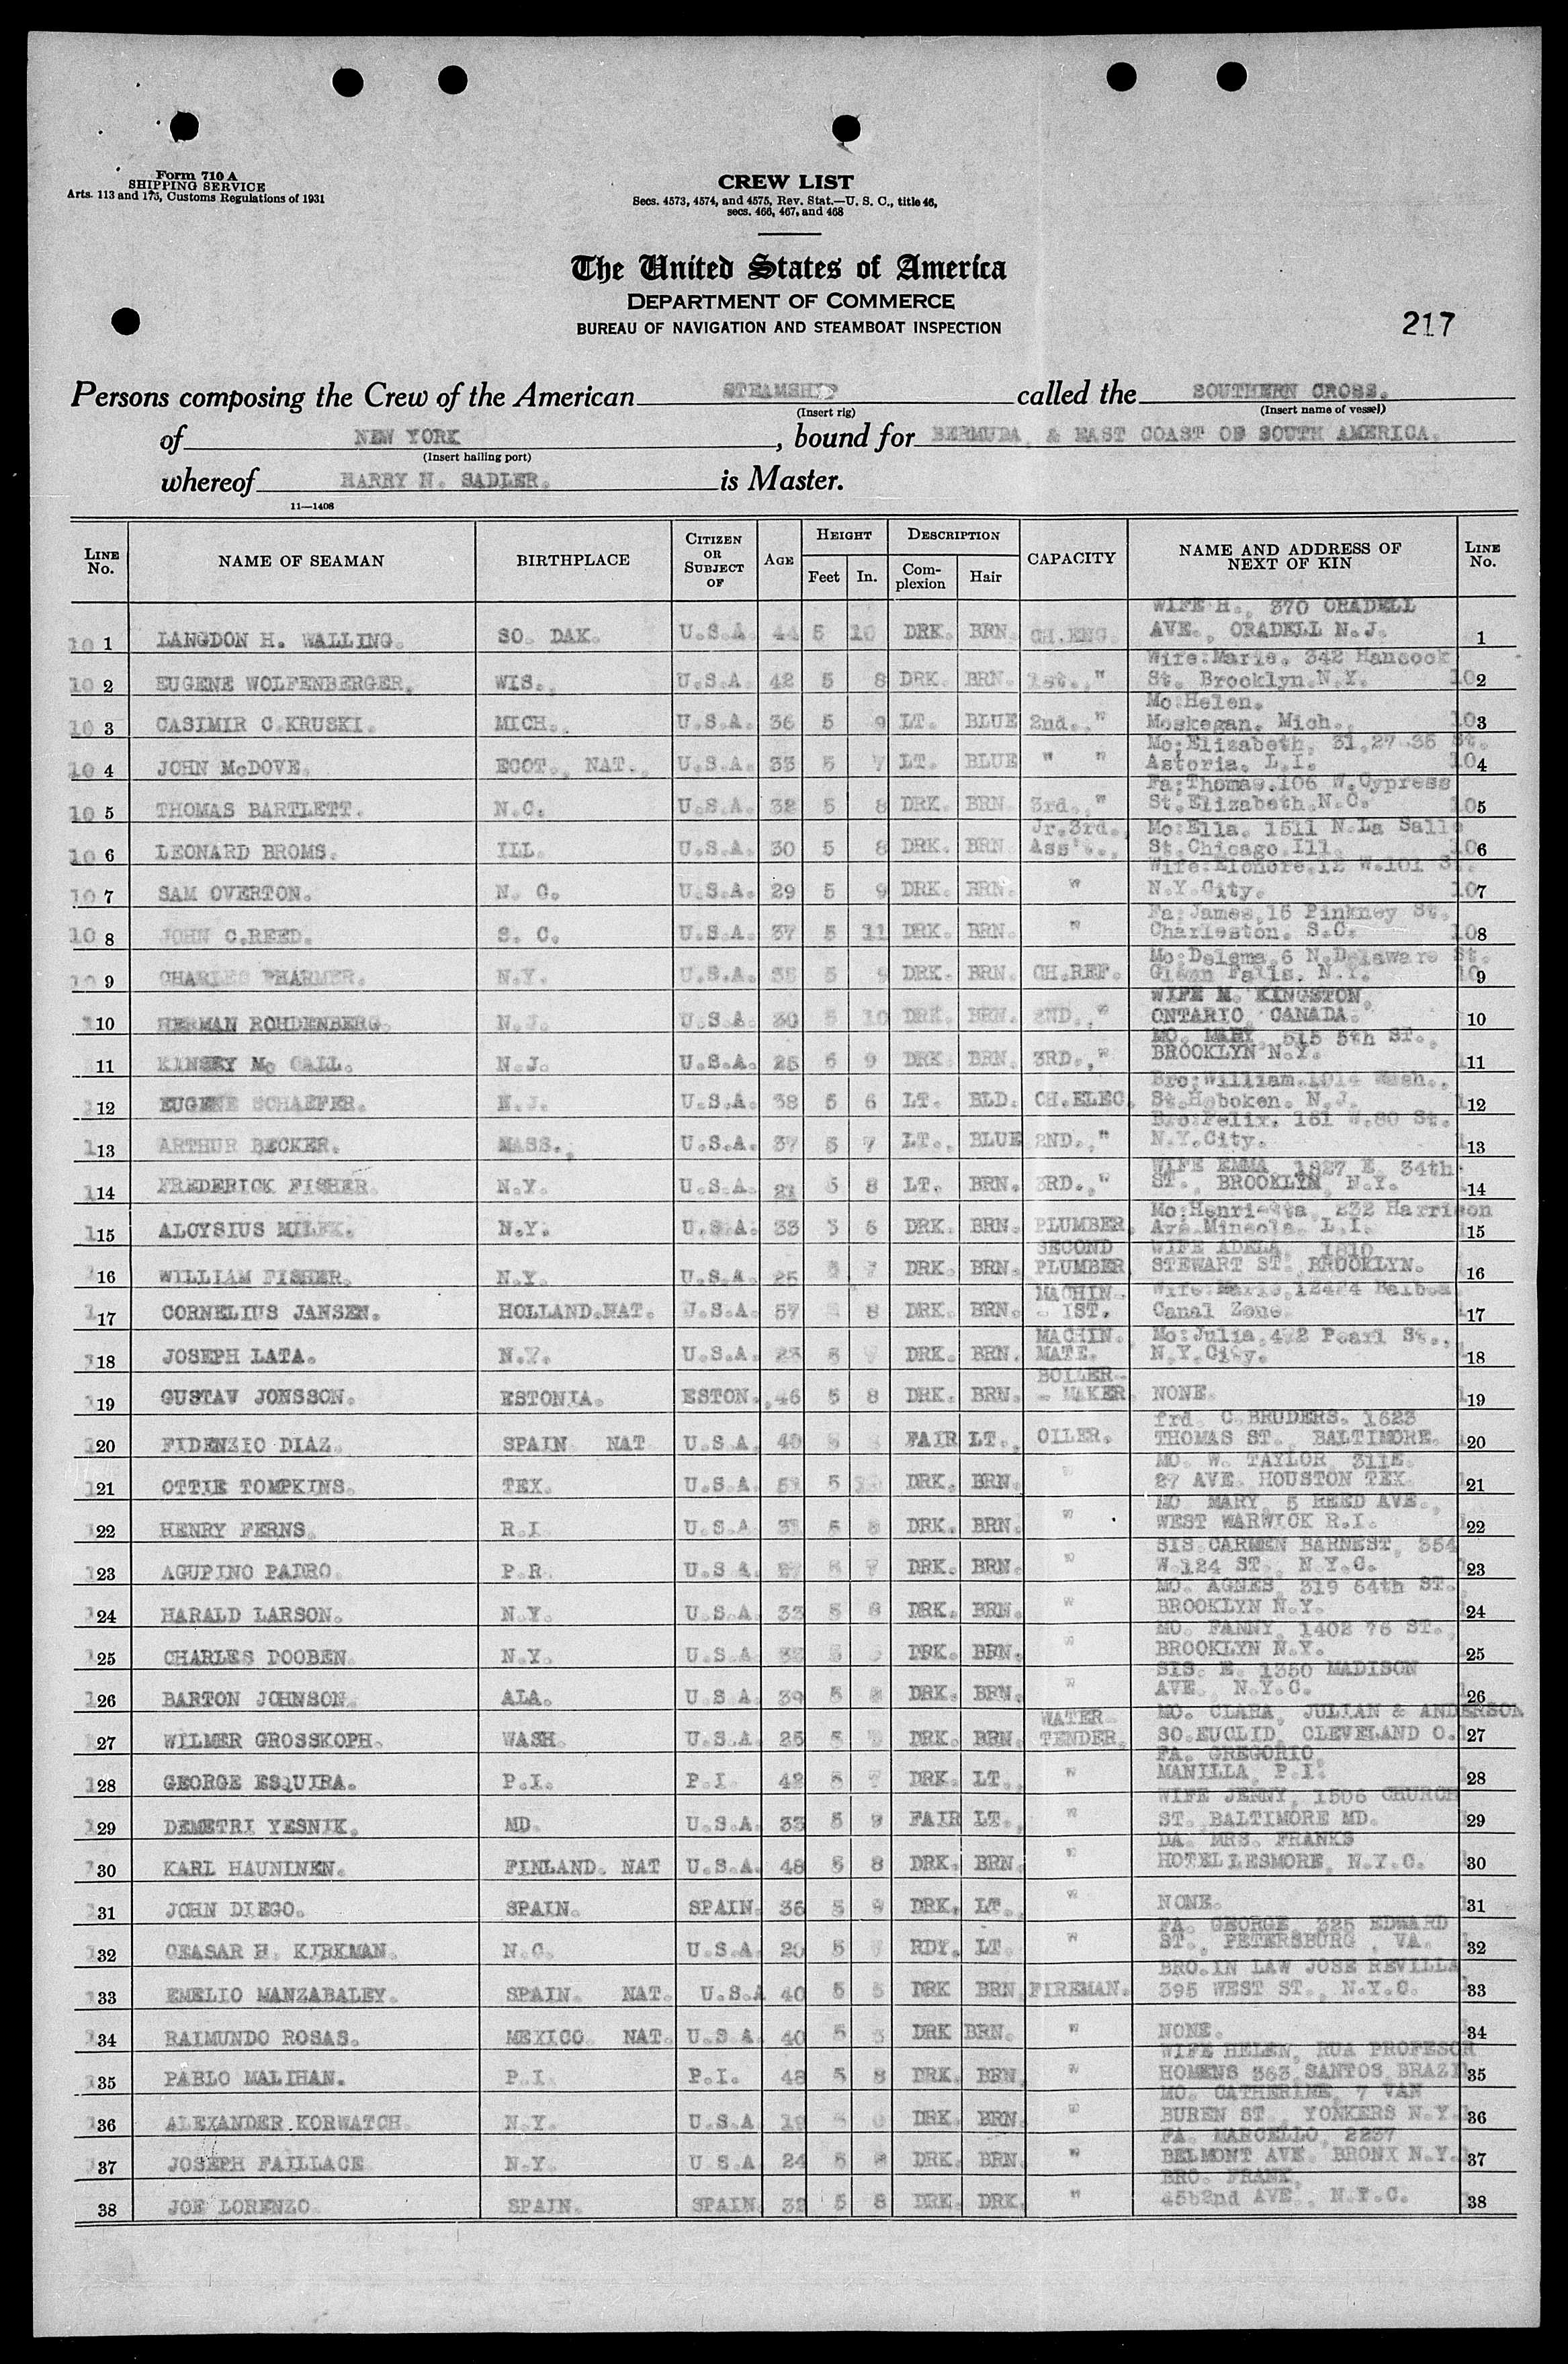 Form 710 A
SHIPPING SERVICE
Arts. 113 and 175, Customs Regulations of 1931
CREW LIST
Secs. 4573, 4574, and 4575, Rev. Stat.—U. S. C., title 46,
secs. 466, 467, and 468
The United States of America
DEPARTMENT OF COMMERCE
BUREAU OF NAVIGATION AND STEAMBOAT INSPECTION
217
Persons composing the Crew of the American STEAMSHIP called the SOUTHERN CROSS.
(Insert rig) (Insert name of vessel)
of NEW YORK, bound for BERMUDA & EAST COAST OF SOUTH AMERICA.
(Insert hailing port)
whereof HARRY N. SADLER. is Master.
11—1408
LINE No. NAME OF SEAMAN BIRTHPLACE CITIZEN OR SUBJECT OF AGE HEIGHT Feet In. DESCRIPTION Complexion Hair CAPACITY NAME AND ADDRESS OF NEXT OF KIN LINE No.
WIFE H., 370 ORADELL
10 1 LANGDON H. WALLING. SO. DAK. U.S.A. 44 5 10 DRK. BRN. CH.ENG. AVE., ORADELL N.J. 1
Wife:Marie. 342 Hancock
10 2 EUGENE WOLFENBERGER. WIS. U.S.A. 42 5 8 DRK. BRN. 1st.," St. Brooklyn.N.Y. 102
Mo:Helen.
10 3 CASIMIR C.KRUSKI. MICH. U.S.A. 36 5 9 LT. BLUE 2nd.," Moskegan. Mich. 103
Mo:Elizabeth, 31.27-35 St.
10 4 JOHN McDOVE. ECOT. NAT. U.S.A. 33 5 7 LT. BLUE " " Astoria. L.I. 104
Fa:Thomas.106 W.Cypress
10 5 THOMAS BARTLETT. N.C. U.S.A. 32 5 8 DRK. BRN. 3rd.," St.Elizabeth.N.C. 105
Jr.3rd., Mo:Ella. 1511 N.La Salle
10 6 LEONARD BROMS. ILL. U.S.A. 30 5 8 DRK. BRN. Ass't., St.Chicago.Ill. 106
Wife: 12 W.101 St.
10 7 SAM OVERTON. N. C. U.S.A. 29 5 9 DRK. BRN. " N.Y.City. 107
Fa:James,15 Pinkney St.
10 8 JOHN C.REED. S. C. U.S.A. 37 5 11 DRK. BRN. " Charleston. S.C. 108
Mo:Delema,6 N.Delaware St.
10 9 CHARLES PHARMER. N.Y. U.S.A. 35 5 9 DRK. BRN. CH.REF. Falls. N.Y. 109
WIFE M. KINGSTON
110 HERMAN ROHDENBERG. N.J. U.S.A. 30 5 10 DRK. BRN. 2ND.," ONTARIO CANADA. 10
MO. MARY 515 5th ST.,
11 KINSEY Mc CALL. N.J. U.S.A. 25 5 9 DRK BRN. 3RD.," BROOKLYN N.Y. 111
Bro:William.1014 Wash.,
12 EUGENE SCHAEFER. N.J. U.S.A. 38 5 6 LT. BLD. CH.ELEC. St.Hoboken. N.J. 112
Bro:Felix. 151 W.80 St.
113 ARTHUR BECKER. MASS. U.S.A. 37 5 7 LT. BLUE 2ND.," N.Y.City. 113
WIFE EMMA 1827 E. 34th
114 FREDERICK FISHER. N.Y. U.S.A. 21 5 8 LT. BRN. 3RD.," ST., BROOKLYN, N.Y. 14
Mo:Henrietta, 232 Harrison
115 ALOYSIUS N.Y. U.S.A. 33 5 6 DRK. BRN. PLUMBER. Ave.Mineola. L.I. 115
SECOND WIFE ADELA 1810
16 WILLIAM FISHER. N.Y. U.S.A. 25 7 DRK. BRN. PLUMBER. STEWART ST. BROOKLYN. 16
MACHIN- Wife:Marie, Balboa
117 CORNELIUS JANSEN. HOLLAND.NAT. U.S.A. 57 8 DRK. BRN. - IST. Canal Zone. 17
MACHIN. Mo:Julia,472 Pearl St.,
18 JOSEPH LATA. N.Y. U.S.A. 23 5 DRK. BRN. MATE. N.Y.City. 18
BOILER-
19 GUSTAV JONSSON. ESTONIA. ESTON. 46 5 8 DRK. BRN. - MAKER. NONE. 19
frd. C.BRUDERS. 1623
120 FIDENZIO DIAZ. SPAIN NAT U.S.A. 40 FAIR LT. OILER. THOMAS ST. BALTIMORE. 20
MO. W. TAYLOR 311E.
121 OTTIE TOMPKINS. TEX. U.S.A. 5 DRK. BRN. " 27 AVE. HOUSTON TEX. 21
MO MARY 5 REED AVE.,
122 HENRY FERNS. R.I. U.S.A. 5 8 DRK. BRN. " WEST WARWICK R.I. 22
SIS CARMEN BARNEST, 354
123 AGUPINO PADRO. P.R. U.S.A. 7 DRK. BRN. " W.124 ST., N.Y.C. 23
MO. AGNES, 319 64th ST.
124 HARALD LARSON. N.Y. U.S.A. 33 5 8 DRK. BRN. " BROOKLYN N.Y. 24
MO. FANNY, 1402 76 ST.,
125 CHARLES DOOBEN. N.Y. U.S.A. DRK. BRN. " BROOKLYN N.Y. 25
SIS. E. 1350 MADISON
126 BARTON JOHNSON. ALA. U.S.A. 39 5 DRK. BRN. " AVE. N.Y.C. 26
WATER MO. CLARA, JULIAN & ANDERSON
27 WILMER GROSSKOPH. WASH. U.S.A. 25 5 DRK. BRN. TENDER. SO.EUCLID, CLEVELAND O. 27
FA. GREGORIO
128 GEORGE ESQUIRA. P.I. P.I. 42 5 7 DRK. LT. " MANILLA, P.I. 28
WIFE JENNY, 1506 CHURCH
129 DEMETRI YESNIK. MD. U.S.A. 33 5 9 FAIR LT. " ST. BALTIMORE MD. 29
DA. MRS. FRANKS
30 KARL HAUNINEN. FINLAND. NAT U.S.A. 48 5 8 DRK. BRN. " HOTEL LESMORE, N.Y.C. 30
131 JOHN DIEGO. SPAIN. SPAIN. 36 5 9 DRK. LT. " NONE. 31
FA. GEORGE, 325 EDWARD
132 CEASAR H. KIRKMAN. N.C. U.S.A. 20 5 7 RDY. LT. " ST., PETERSBURG, VA. 32
BRO.IN LAW JOSE REVILLA
133 EMELIO MANZABALEY. SPAIN. NAT. U.S.A 40 5 5 DRK BRN FIREMAN. 395 WEST ST., N.Y.C. 33
134 RAIMUNDO ROSAS. MEXICO. NAT. U.S.A. 40 5 3 DRK BRN. " NONE. 34
WIFE HELEN, RUA PROFESOR
135 PABLO MALIHAN. P.I. P.I. 48 5 8 DRK. BRN. " HOMENS 363 SANTOS BRAZIL 35
MO. CATHERINE, 7 VAN
136 ALEXANDER KORWATCH. N.Y. U.S.A. 19 DRK. BRN. " BUREN ST., YONKERS N.Y. 36
FA. MARCELLO, 2237
37 JOSEPH FAILLACE N.Y. U.S.A 24 5 8 DRK. BRN. " BELMONT AVE. BRONX N.Y. 37
BRO. FRANK,
38 JOE LORENZO. SPAIN. SPAIN. 32 5 8 DRK. DRK. " AVE., N.Y.C. 38